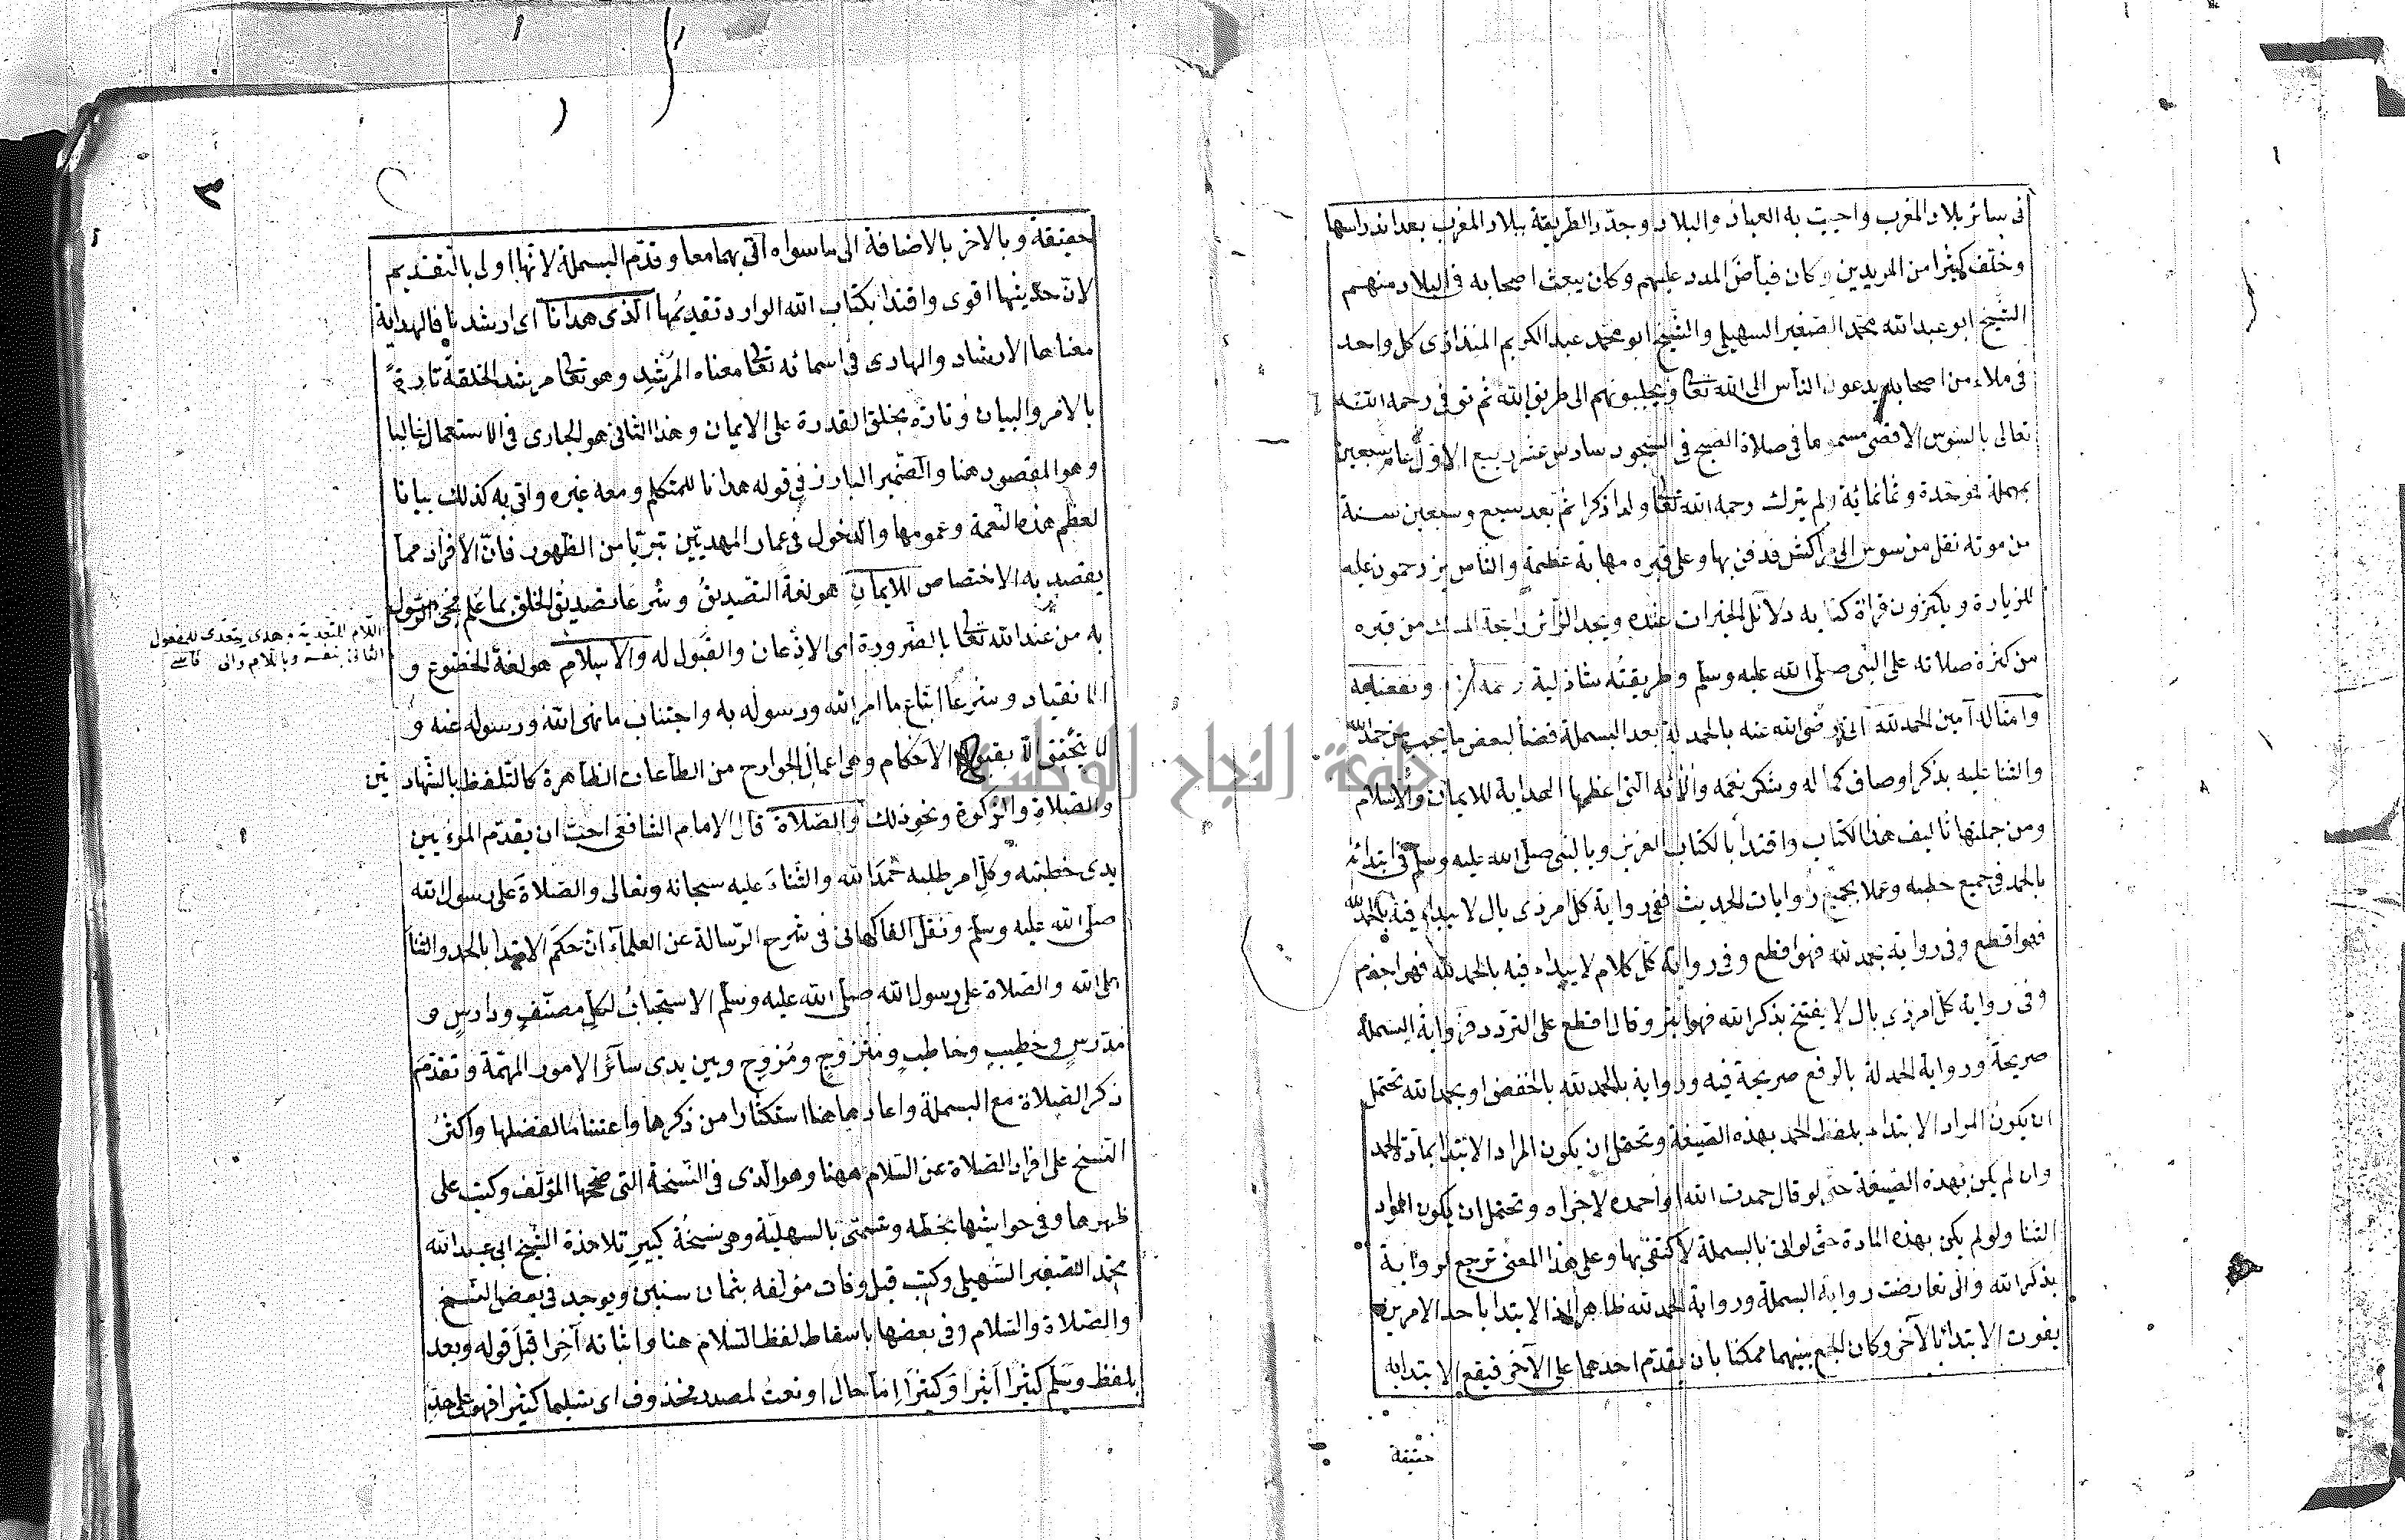 في سائر بلاد المغرب واحييت به العباد والبلاد وجدد الطريقة ببلاد المغرب بعد اندراسها
وخلف كثيرا من المريدين وكان فياض المدد عليهم وكان يبعث اصحابه في البلاد منهم
الشيخ ابو عبد الله محمد الصغير السهيلي والشيخ ابو محمد عبد الكريم المنذاري كل واحد
في ملاء من اصحابه يدعون الناس الى الله تعا ويجلبونهم الى طريق الله ثم توفي رحمه الله
تعالى بالسوس الاقصى مسموما في صلاة الصبح في السجود سادس عشر ربيع الاول عام سبعين
بمهملة فموحدة وثمانمائة ولم يترك رحمه الله تعا ولدا ذكرا ثم بعد سبع وسبعين سنة
من موته نقل من سوس الى مراكش فدفن بها وعلى قبره مهابة عظيمة والناس يزدحمون عليه
للزيارة ويكثرون قراة كتابه دلائل الخيرات عنده ويجد الزائر رائحة المسك من قبره
من كثرة صلاته على النبي صلى الله عليه وسلم وطريقته شاذلية ونفعنا به
وامثاله آمين الحمد لله اتى رضي الله عنه بالحمد لة بعد البسملة قضأ لبعض ما يجب من حمد الله
والثنا عليه بذكر اوصاف كماله وشكر نعمه وآلائه التي اعظمها الهداية للايمان والاسلام
ومن جملتها تاليف هذا الكتاب واقتدأ بالكتاب العزيز وبالنبي صلى الله عليه وسلم في ابتدائه
بالحمد في جميع خطبه وعملا بجميع روايات الحديث ففي رواية كل امر ذي بال لا يبداء فيه بالحمد لله
فهو اقطع وفي رواية بحمد لله فهو اقطع وفي رواية كل كلام لا يبداء فيه بالحمد لله فهو اجذم
وفي رواية كل امر ذي بال لا يفتتح بذكر الله فهو ابتر وقال اقطع على التردد فرواية البسملة
صريحة ورواية الحمدلة بالرفع صريحة فيه ورواية بالحمد لله بالخفض او بحمد الله تحتمل
ان يكون المراد الابتداء بلفظ الحمد بهذه الصيغة وتحتمل ان يكون المراد الابتدا بمادة الحمد
وان لم يكن بهذه الصيغة حتى لو قال حمدت الله او أحمده لاجزاه وتحتمل ان يكون المراد
الثنا ولو لم يكن بهذه المادة حتى لو اتى بالبسملة لاكتفى بها وعلى هذا المعنى ترجع لرواية
بذكر الله والى تعارضت رواية البسملة ورواية الحمد لله ظاهرا اذ الابتدا باحد الامرين
يفوت الابتدأ بالآخر وكان الجمع بينهما ممكنا بان يقدم احدهما على الآخر فيقع الابتدا به
حقيقة
٢
حقيقة وبالاخر بالاضافة الى ما سواه اتى بهما معا وقدم البسملة لانها اولى بالتقديم
لان حديثها اقوى واقتدا بكتاب الله الوارد تقديمها الذي هدانا اى ارشدنا فالهداية
معناها الارشاد والهادي في اسمائه تعا معناه المرشد وهو تعا مرشد الخلقه تارة
بالامر والبيان وتارة بخلق القدرة على الايمان وهذا الثاني هو الجاري في الاستعمال غالبا
وهو المقصود هنا والضمير البارز في قوله هدانا للمتكلم ومعه غيره واتى به كذلك بيانا
لعظم هذه النعمة وعمومها والدخول في غمار المهديين تبريا من الظهور فان الافراد مما
يقصد به الاختصاص للايمان هو لغة التصديق وشرعا تصديق الخلق بما علم مجئ الرسول
به من عند الله تعا بالضرورة اى الاذعان والقبول له والاسلام هو لغة الخضوع و
الانقياد وشرعا اتباع ما امر الله ورسوله به واجتناب ما نهى الله ورسوله عنه و
لا يتحقق الا بقبول الاحكام وهي اعمال الجوارح من الطاعات الظاهرة كالتلفظ بالشهادتين
والصلاة والزكوة ونحو ذلك والصلاة قال الامام الشافعي احب ان يقدم المرء بين
يدى خطبته وكل امر طلبه حمد الله والثناء عليه سبحانه وتعالى والصلاة على رسول الله
صلى الله عليه وسلم ونقل الفاكهاني في شرح الرسالة عن العلمآء ان حكم الابتدا بالحمد والثنا
على الله والصلاة على رسول الله صلى الله عليه وسلم الاستحباب لكل مصنف ودارس و
مدرس وخطيب وخاطب ومتزوج ومزوج وبين يدى سآئر الامور المهمة وتقدم
ذكر الصلاة مع البسملة واعادها هنا استكثارا من ذكرها واغتناما لفضلها واكثر
النسخ على افراد الصلاة عن السلام ههنا وهو الذى في النسخة التي صححها المؤلف وكتب على
ظهرها وفي حواشيها بخطه وتسمى بالسهلية وهي نسخة كبير تلامذة الشيخ ابي عبد الله
محمد الصغير السهيلي وكتب قبل وفات مؤلفه بثمان سنين ويوجد في بعض النسخ
والصلاة والسلام وفي بعضها باسقاط لفظ السلام هنا واثباته آخرا قبل قوله وبعد
بلفظ وسلم كثيرا اثيرا وكثيرا اما حال او نعت لمصدر محذوف اى تسليما كثيرا فهو على حد
اللام للتعدية وهدى يتعدى للمفعول
الثاني بنفسه وباللام والى فاسى
جامعة النجاح الوطنية